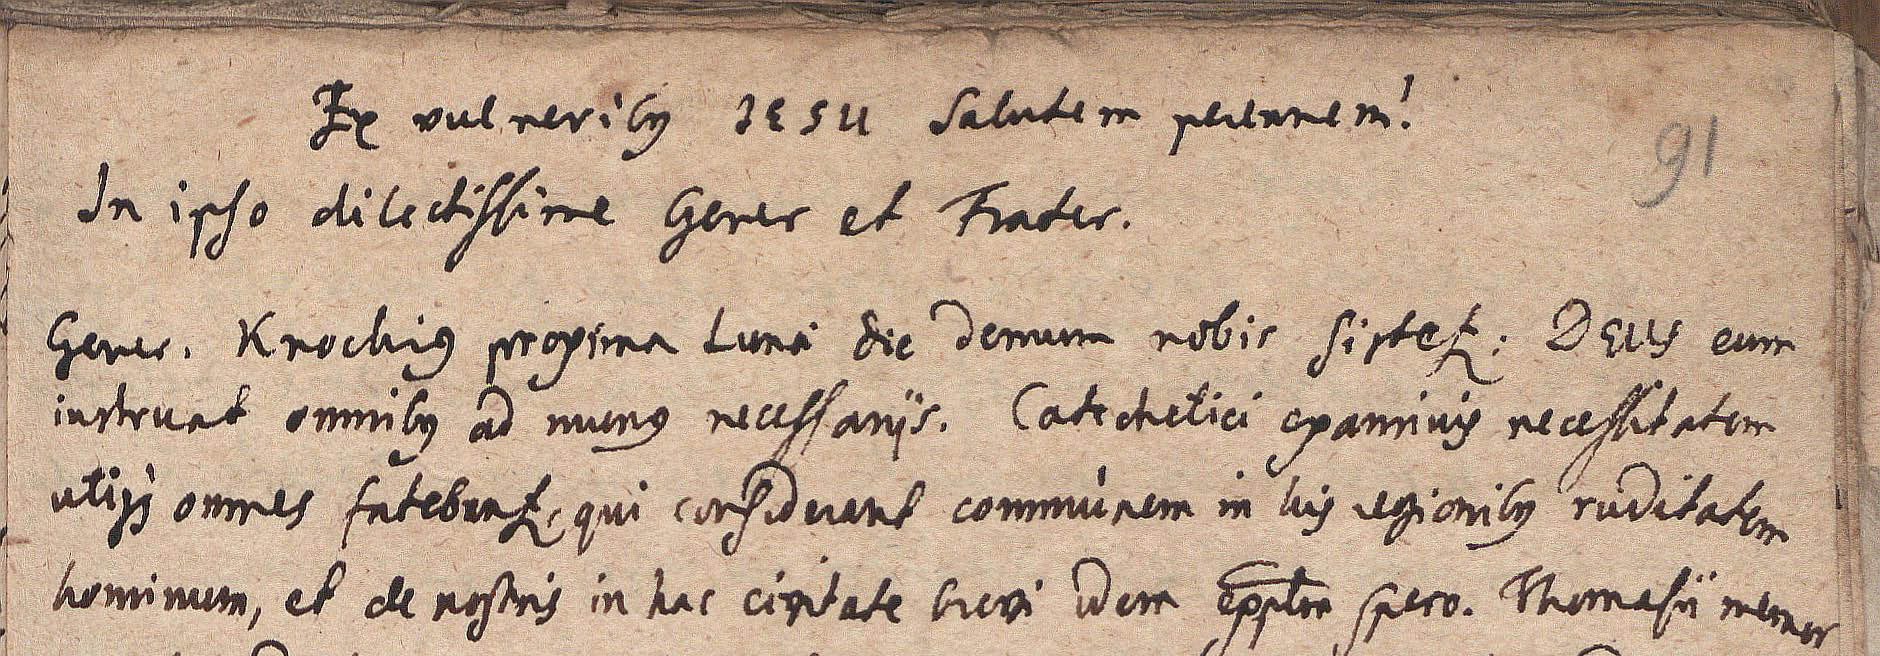 Ex vulneriby JESU Salutem perennem!
91
In ipso dilectissime Gener et Frater.
Gener. Knochig proxima Lunæ die demum nobis sistet: DEUS eum
instruat omniby ad mung necessarijs. Catechetici examinis necessitatem
utiqs omnes fatebunt, qui considerant communem in his regioniby ruditatem
hominum, et de nostris in hac civitate brevi idem spero. Thomasii memor